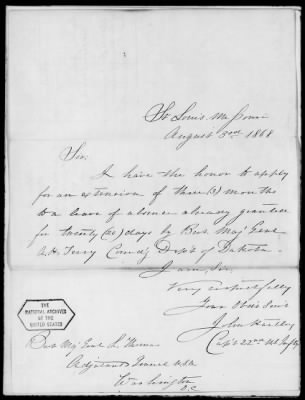 St Louis Missouri
August 3rd 1868
Sir:
I have the honor to apply
for an extension of three (3) months
to a leave of absence already granted
for twenty (20) days by Bvt. Maj Genl
A.H. Terry Comd'g Dep't of Dakota.
I am, Sir,
Very respectfully
Your Obt Servt
John
Capt 22nd US Infty
Bvt Maj Genl L. Thomas
Adjutant General USA
Washington
D.C.
THE
NATIONAL ARCHIVES
OF THE
UNITED STATES